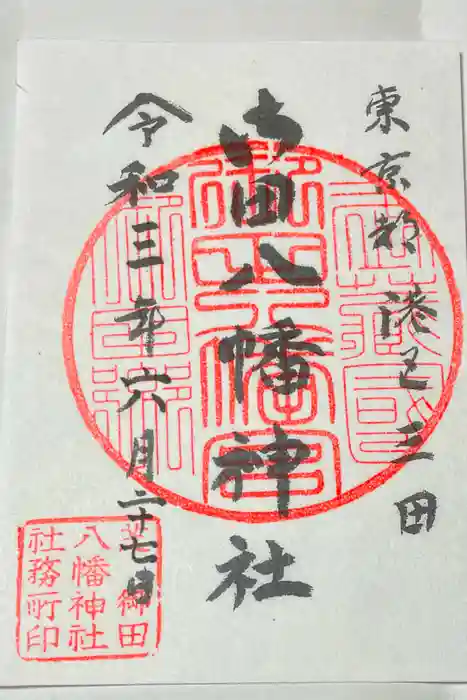 東京都港区三田
御田八幡神社
令和三年六月二十七日
武藏國
御田
八幡神社
社務所印